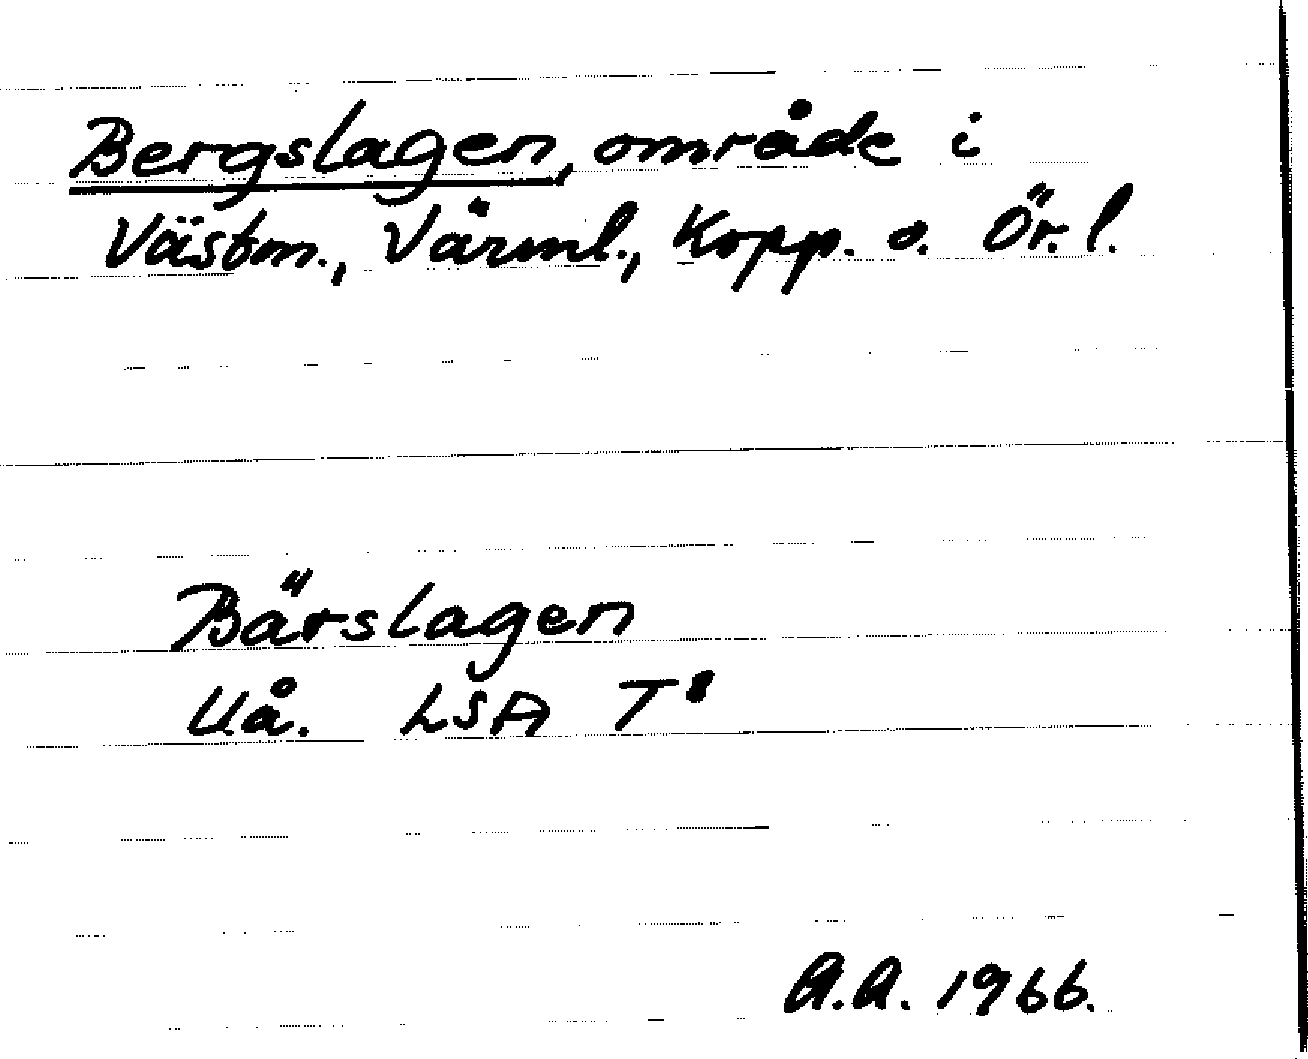 Bergslagen, område i
Västm., Värml., Kopp. o. Ör. l.
Bärslagen
U.å. LSA T
A.A. 1966.